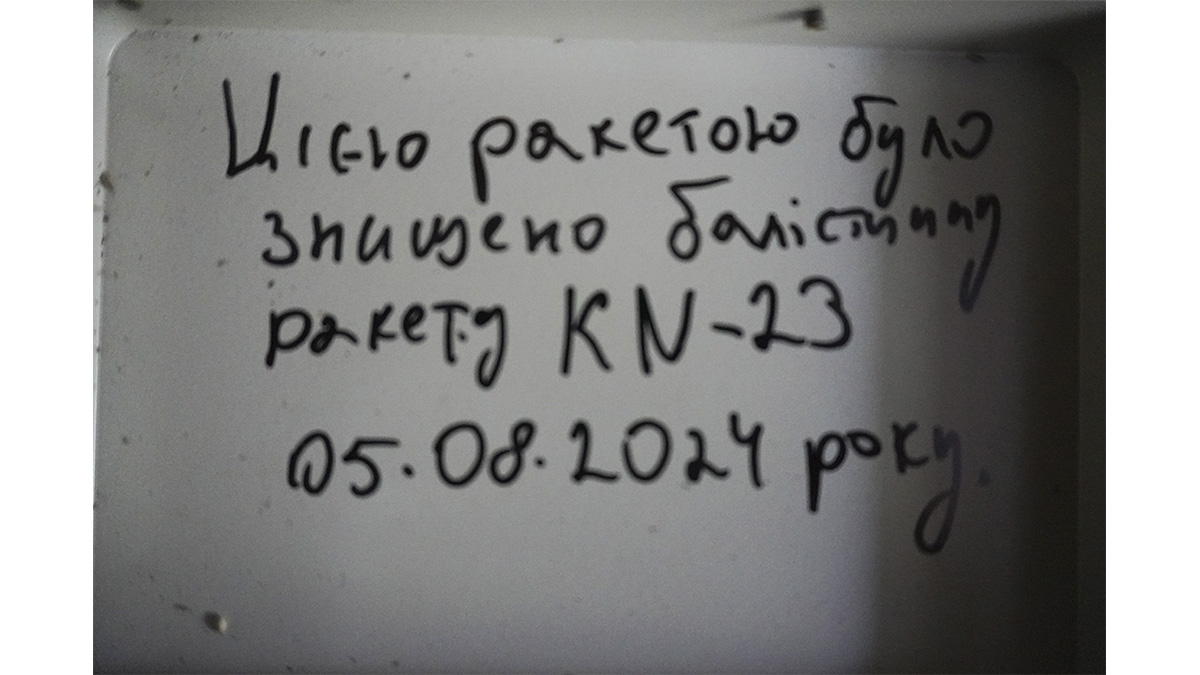 Цією ракетою було
знищено балістичну
ракету KN-23
05.08.2024 року.